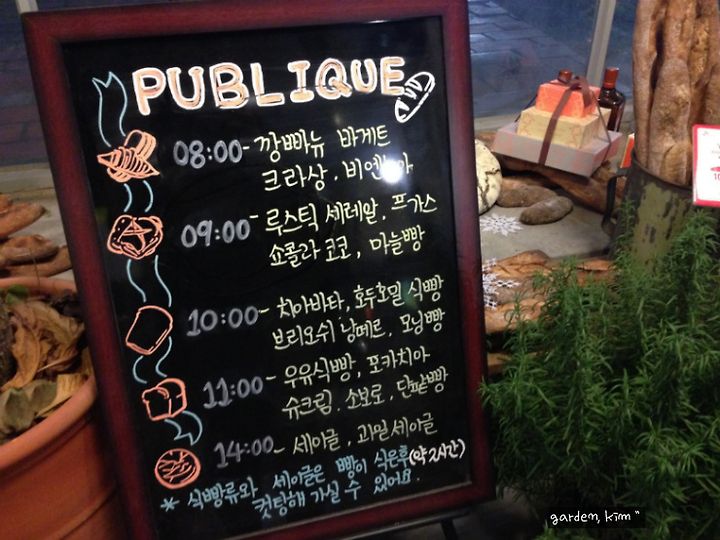 PUBLIQUE
08:00- 깡빠뉴 바게트
크라상, 비엔
09:00- 루스틱 세레알, 프가스
쇼콜라 코코, 마늘빵
10:00- 치아바타, 호두호밀 식빵
브리오쉬 낭떼르, 모닝빵
11:00- 우유식빵, 포카치아
슈크림. 소보로, 단팥빵
14:00- 세이글, 과일세이글
* 식빵류와 세이글은 빵이 식은후(약 2시간)
컷팅해 가실 수 있어요.
garden, kim"